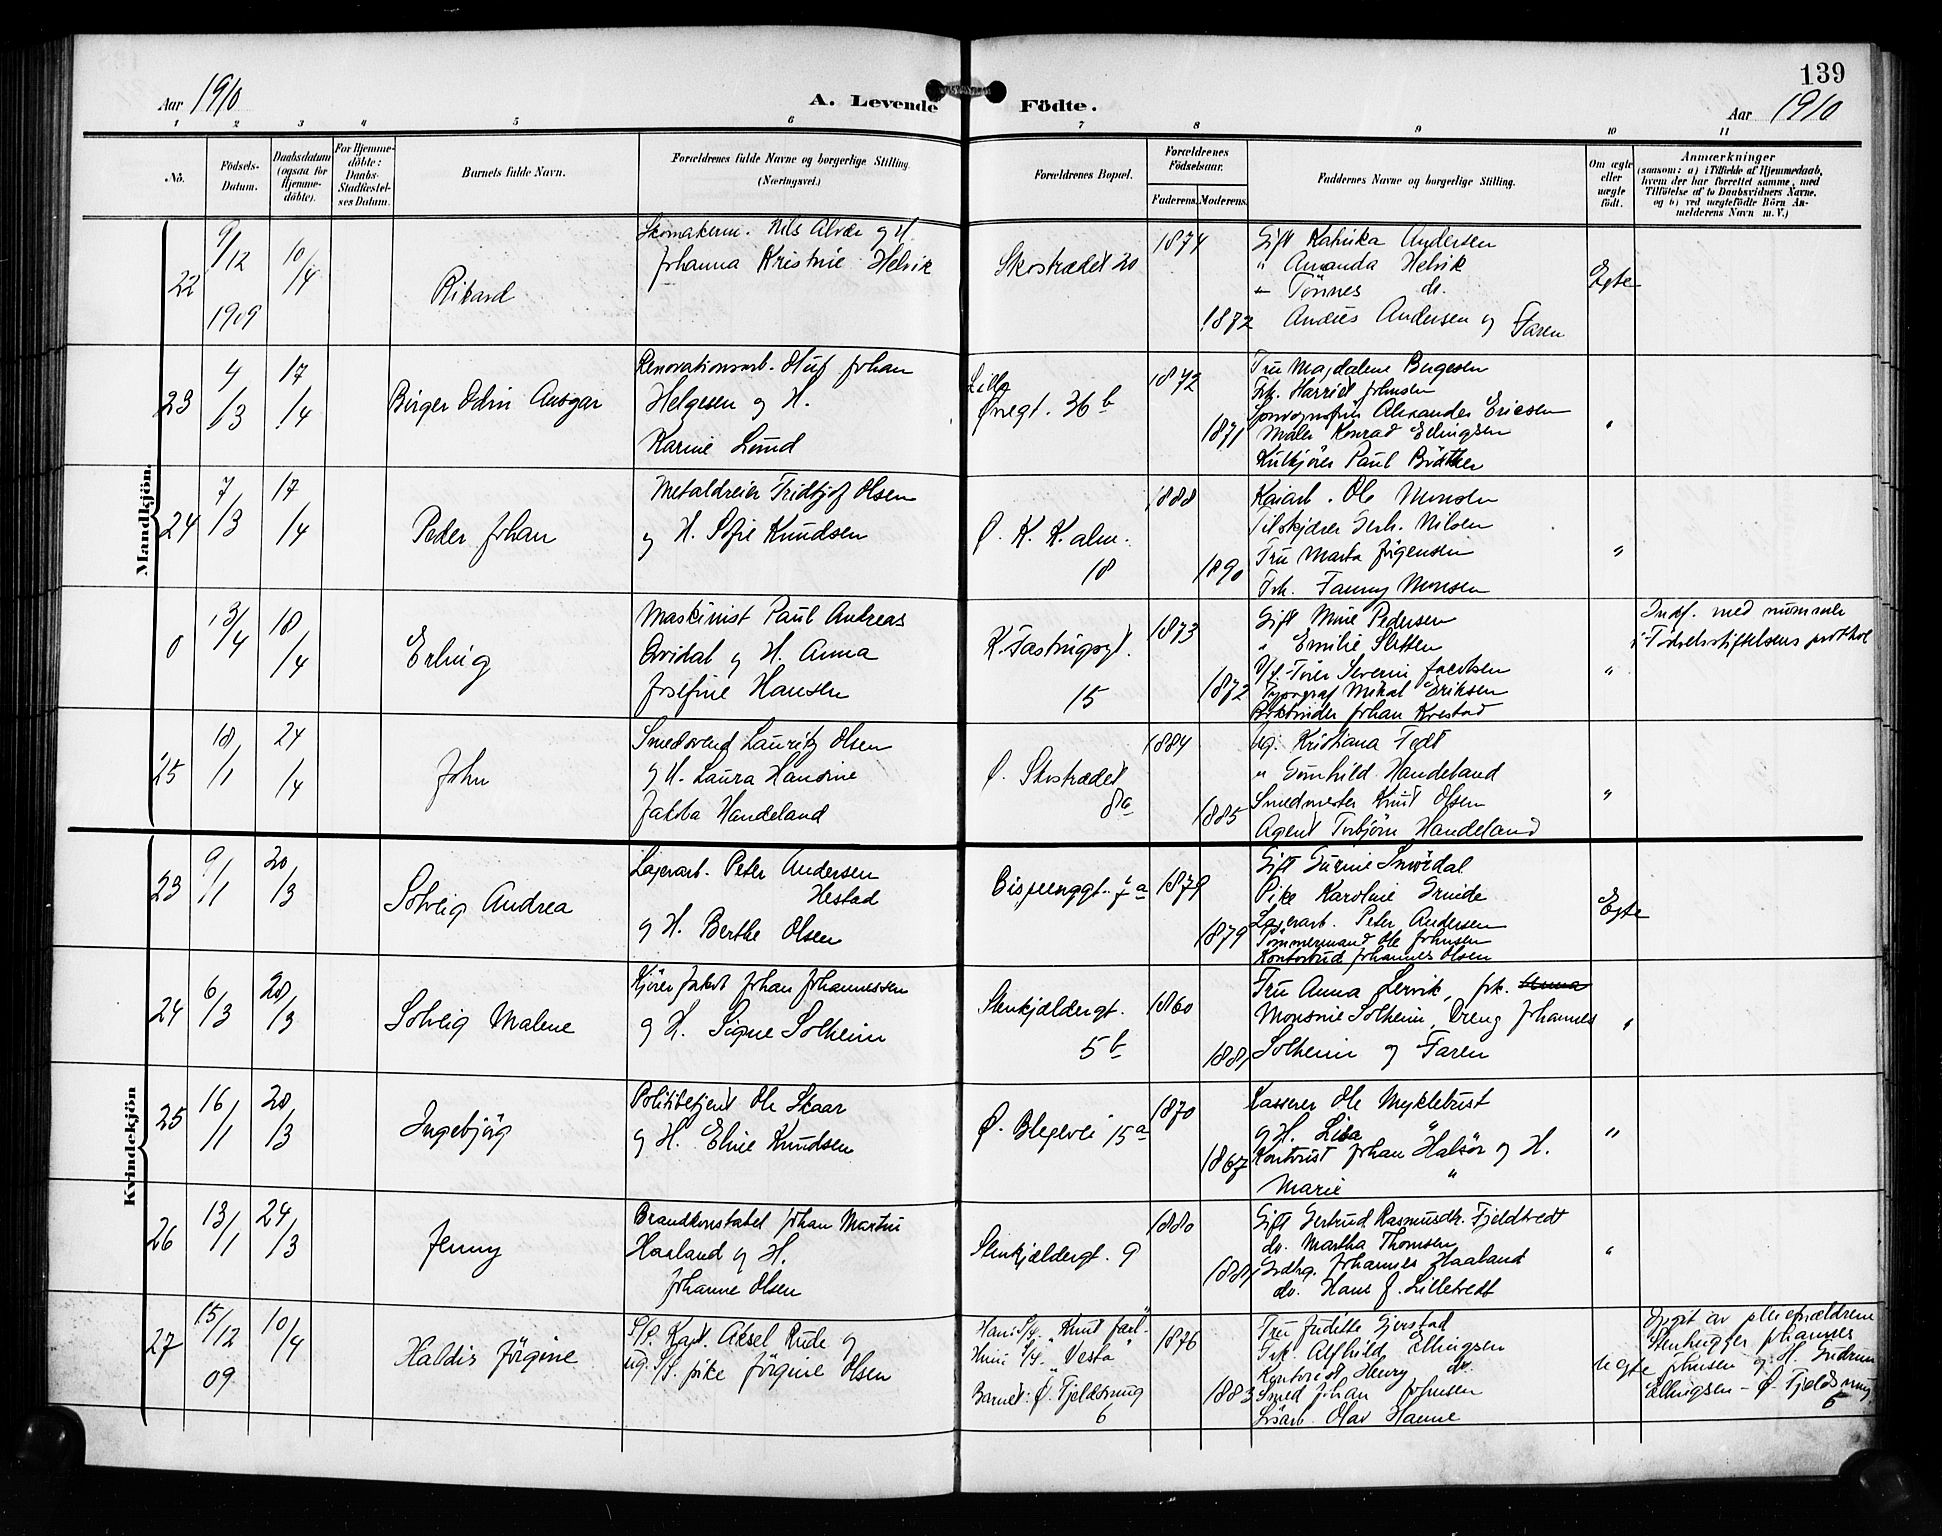 139
Aar 1910
A. Levende Födte.
Aar 1910
1 2 3 4 5 6 7 8 9 10 11
No.
Födsels-Datum.
Daabsdatum (ogsaa for Hjemme-döbte).
For Hjemme-döbte: Daabs-Stadfæstel-ses Datum.
Barnets fulde Navn.
Forældrenes fulde Navne og borgerlige Stilling.
(Næringsvei.)
Forældrenes Bopæl.
Forældrenes Födselsaar.
Faderens. Moderens.
Faddernes Navne og borgerlige Stilling.
Om ægte eller uægte födt.
Anmærkninger
(saasom: a) i Tilfælde af Hjemmedaab,
hvem der har forrettet samme, med
Tilföielse af to Daabsvidners Navne,
og b) ved uægtefödte Börn An-
melderens Navn m. V.)
Mandkjön
22
9/12 1909
10/4
Rikard
Skomakerm. Nils Alver og H.
Johanna Kristine Helvik
Skostrædet 20
1874
1872
Gift Katrika Andersen
" Amanda Helvik
" Tönnes do.
Andreas Andersen og Faren
Egte
23
4/3
17/4
Birger Odin Ansgar
Renovationsarb. Oluf Johan
Helgesen og H.
Karine Lund
Lille
Øvregt. 36b
1872
1871
Fru Magdalene Bergesen
Frk. Harriet Johnsen
Alexander Ericsen
Maler Konrad Ellingsen
Kulkjörer Paul
"
24
7/3
17/4
Peder Johan
Metaldreier Fridtjof Olsen
og H. Sofie Knudsen
Ø. K. K. alm.
18
1888
1890
Kaiarb. Ole Monsen
Gerh. Nilsen
Fru Marta Jörgensen
Frk. Fanny Monsen
"
0
13/4
18/4
Erling
Maskinist Paul Andreas
Arvidal og H. Anna
Josefine Hansen
K. Fastingsgt.
15
1873
1872
Gift Mine Pedersen
" Emilie Sletten
Severin Jacobsen
Typograf Mikal Eriksen
Bokbinder Johan
"
Indf. med nummer
i Födselsstiftelsens protkol
25
18/1
24/4
John
Smedsvend Lauritz Olsen
og H. Laura Handine
Jakoba Handeland
Ø. Skostrædet
8a
1884
1885
Ug. Kristiana Tedt
" Gunhild Handeland
Smedmester Knut Olsen
Agent Torbjörn Handeland
"
Kvindekjön
23
9/1
20/3
Solveig Andrea
Lagerarb. Peter Andersen
Hestad
og H. Berthe Olsen
Bispenggt. 7a
1879
1879
Gift Gurine
Pike Karoline Grinde
Lagerarb. Peter Andersen
Tömmermand Ole Johnsen
Kontorbud Johannes Olsen
Egte
24
6/3
20/3
Solveig Malene
Kjörer Jakob Johan Johannessen
og H. Signe Solheim
Stenkjældergt.
5b
1860
1881
Fru Anna Lervik, frk. Anna
Monsine Solheim, Dreng Johannes
Solheim og Faren
"
25
16/1
20/3
Ingebjörg
Politibetjent Ole Skaar
og H. Eline Knudsen
Ø. Blegevei 15a
1870
1867
Kasserer Ole Myklebust
og H. Lisa "
Kontorist Johan Halsör og H.
Marie "
"
26
13/1
24/3
Jenny
Brandkonstabel Johan Martin
Haaland og H.
Johanne Olsen
Stenkjældergt. 9
1880
1881
Gift Gertrud Rasmusdtr. Fjeldtvedt
do. Martha Thomsen
Grdbg. Johannes Haaland
do. Hans J. Lilletvedt
"
27
15/12 09
10/4
Haldis Jörgine
S/S. Karl Aksel Rude og
ug. S/S. pike Jörgine Olsen
Han: S/S. "Knut Jarl"
Hun: S/S. "Vesta"
Barnet: Ø. Fjeldsmug
6
1876
1883
Fru Juditte Gjerstad
Frk. Alfhild Ellingsen
Kontorist Henry do.
Smed Johan Johnsen
Olav Hanne
Uegte
Opgit av pleieforældrene
Stenhugger Johannes
Johnsen og H. Gudrun
Ellingsen - Ø. Fjeldsmug
6